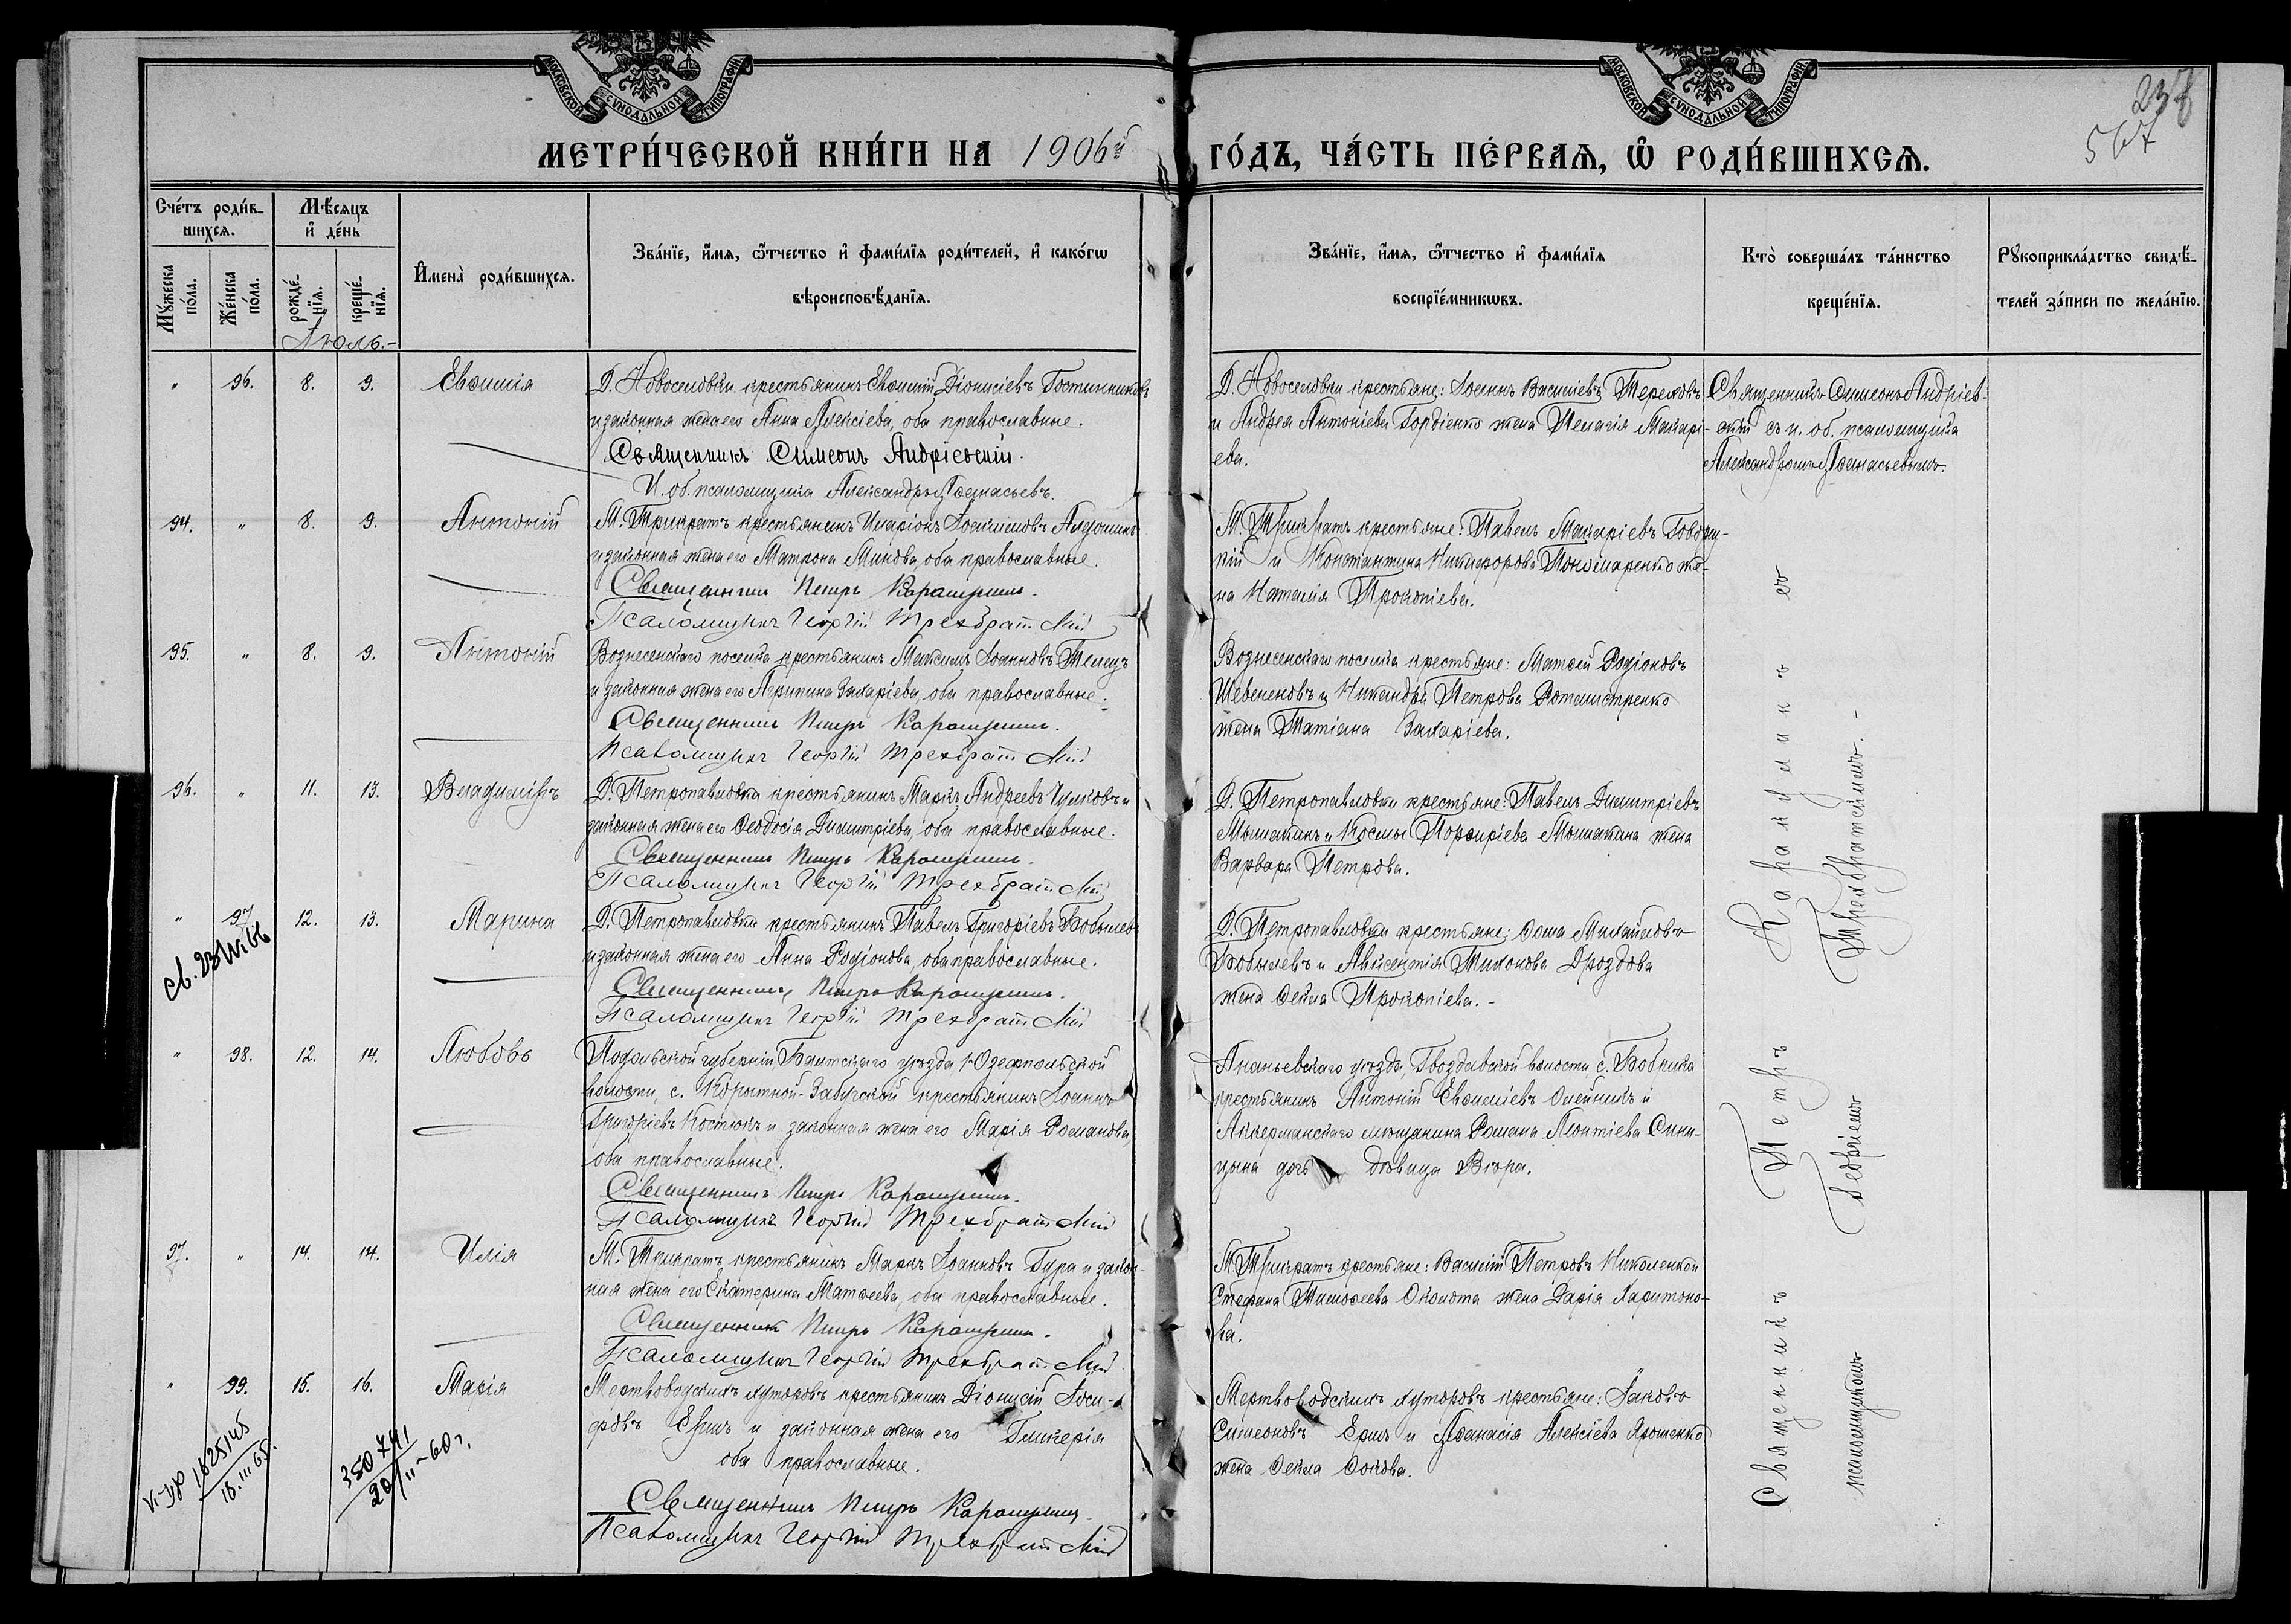 МОСКОВСКОЙ СѴНОДАЛЬНОЙ ТИПОГРАФІИ
МОСКОВСКОЙ СѴНОДАЛЬНОЙ ТИПОГРАФІИ
238
567
МЕТРИ́ЧЕСКОЙ КНИ́ГИ НА 1906й ГО́ДЪ, ЧА́СТЬ ПЕ́РВАѦ, Ѡ҆ РОДИ́ВШИХСѦ.
Сче́тъ роди́в-
шихсѧ.
Мѣ́сѧцъ
и҆ де́нь
Мꙋ́жеска
по́ла.
Же́нска
по́ла.
рожде́-
нїѧ.
креще́-
нїѧ.
И҆мена̀ роди́вшихсѧ.
Зва́нїе, и҆́мѧ, ѻ҆́тчество и҆ фами́лїѧ роди́телей, и҆ како́гѡ
вѣроисповѣ́данїѧ.
Зва́нїе, и҆́мѧ, ѻ҆́тчество и҆ фами́лїѧ
воспрїе́мникѡвъ.
Кто̀ соверша́лъ та́инство
креще́нїѧ.
Рꙋкоприкла́дство свидѣ́-
телей за́писи по жела́нїю.
Іюль.-
" 96. 8. 9. Евѳимія
Д. Новоселовки крестьянинъ Евѳимій Діонисіевъ Гостинниковъ
и законная жена его Анна Алексіева, оба православные.
Священникъ Симеонъ Андріевскій.
И. об. псаломщика Александръ Аѳанасьевъ.
Д. Новоселовки крестьяне: Іоаннъ Василіевъ Тереховъ
и Андрея Антоніева Гордіенко жена Пелагія Макарі-
ева.
Священникъ Симеонъ Андріев-
скій съ и. об. псаломщика
Александромъ Аѳанасьевымъ.
94. " 8. 9. Антоній
М. Трикратъ крестьянинъ Иларіонъ Іоакимовъ
и законная жена его Матрона оба православные.
Священникъ Петръ
Псаломщикъ Георгій Трехбратскій
М. Трикратъ крестьяне: Павелъ Макаріевъ
и Константина Никифорова Пономаренко же-
на Наталія Прокопіева.
95. " 8. 9. Антоній
Вознесенскаго поселка крестьянинъ Максимъ Іоанновъ Телецъ
и законная жена его Агрипина Захаріева, оба православные.
Священникъ Петръ
Псаломщикъ Георгій Трехбратскій
Вознесенскаго поселка крестьяне: Матѳей Родіоновъ
и Никандра Петрова
жена Татіана Захаріева.
96. " 11. 13. Владиміръ
Д. Петропавловки крестьянинъ Маркъ Андреевъ Чумковъ и
законная жена его Ѳеодосія Димитріева, оба православные.
Священникъ Петръ
Псаломщикъ Георгій Трехбратскій
Д. Петропавловки крестьяне: Павелъ Димитріевъ
и Космы Порфиріева жена
Варвара Петрова.
" 97 12. 13. Марина
Д. Петропавловки крестьянинъ Павелъ Григоріевъ Бобылевъ
и законная жена его Анна Родіонова, оба православные.
Священникъ Петръ
Псаломщикъ Георгій Трехбратскій
Д. Петропавловки крестьяне: Ѳома Михайловъ
Бобылевъ и Авксентія Тихонова Дроздова
жена Ѳекла Прокопіева.-
" 98. 12. 14. Любовь
Подольской губерніи, Балтскаго уѣзда Юзефпольской
волости, с. Корытной-Забугской крестьянинъ Іоаннъ
Григоріевъ Костюкъ и законная жена его Марія Романова
оба православные.
Священникъ Петръ
Псаломщикъ Георгій Трехбратскій
Ананьевскаго уѣзда, Гвоздавской волости с. Бобрика
крестьянинъ Антоній Евѳиміевъ Олейникъ и
Аккерманскаго мѣщанина Романа Леонтіева Сини-
цына дочь дѣвица Вѣра.
97. " 14. 14. Илія
М. Трикратъ крестьянинъ Маркъ Іоанновъ Бура и закон-
ная жена его Екатерина Матѳеева, оба православные.
Священникъ Петръ
Псаломщикъ Георгій Трехбратскій
М. Трикратъ крестьяне: Василій Петровъ
Стефана Тимоѳеева жена Дарія Харитоно-
ва.
" 99. 15. 16. Марія
Мертвоводскихъ хуторовъ крестьянинъ Діонисій Іоси-
фовъ Ершъ и законная жена его Гликерія
оба православные.
Священникъ Петръ
Псаломщикъ Георгій Трехбратскій
Мертвоводскихъ хуторовъ крестьяне: Іаковъ
Симеоновъ Ершъ и Аѳанасія Алексіева Ярошенко
жена Ѳекла
Священникъ Петръ съ
псаломщикомъ Георгіемъ Трехбратскимъ.-
18.III 65.
350741
20/II-60г.